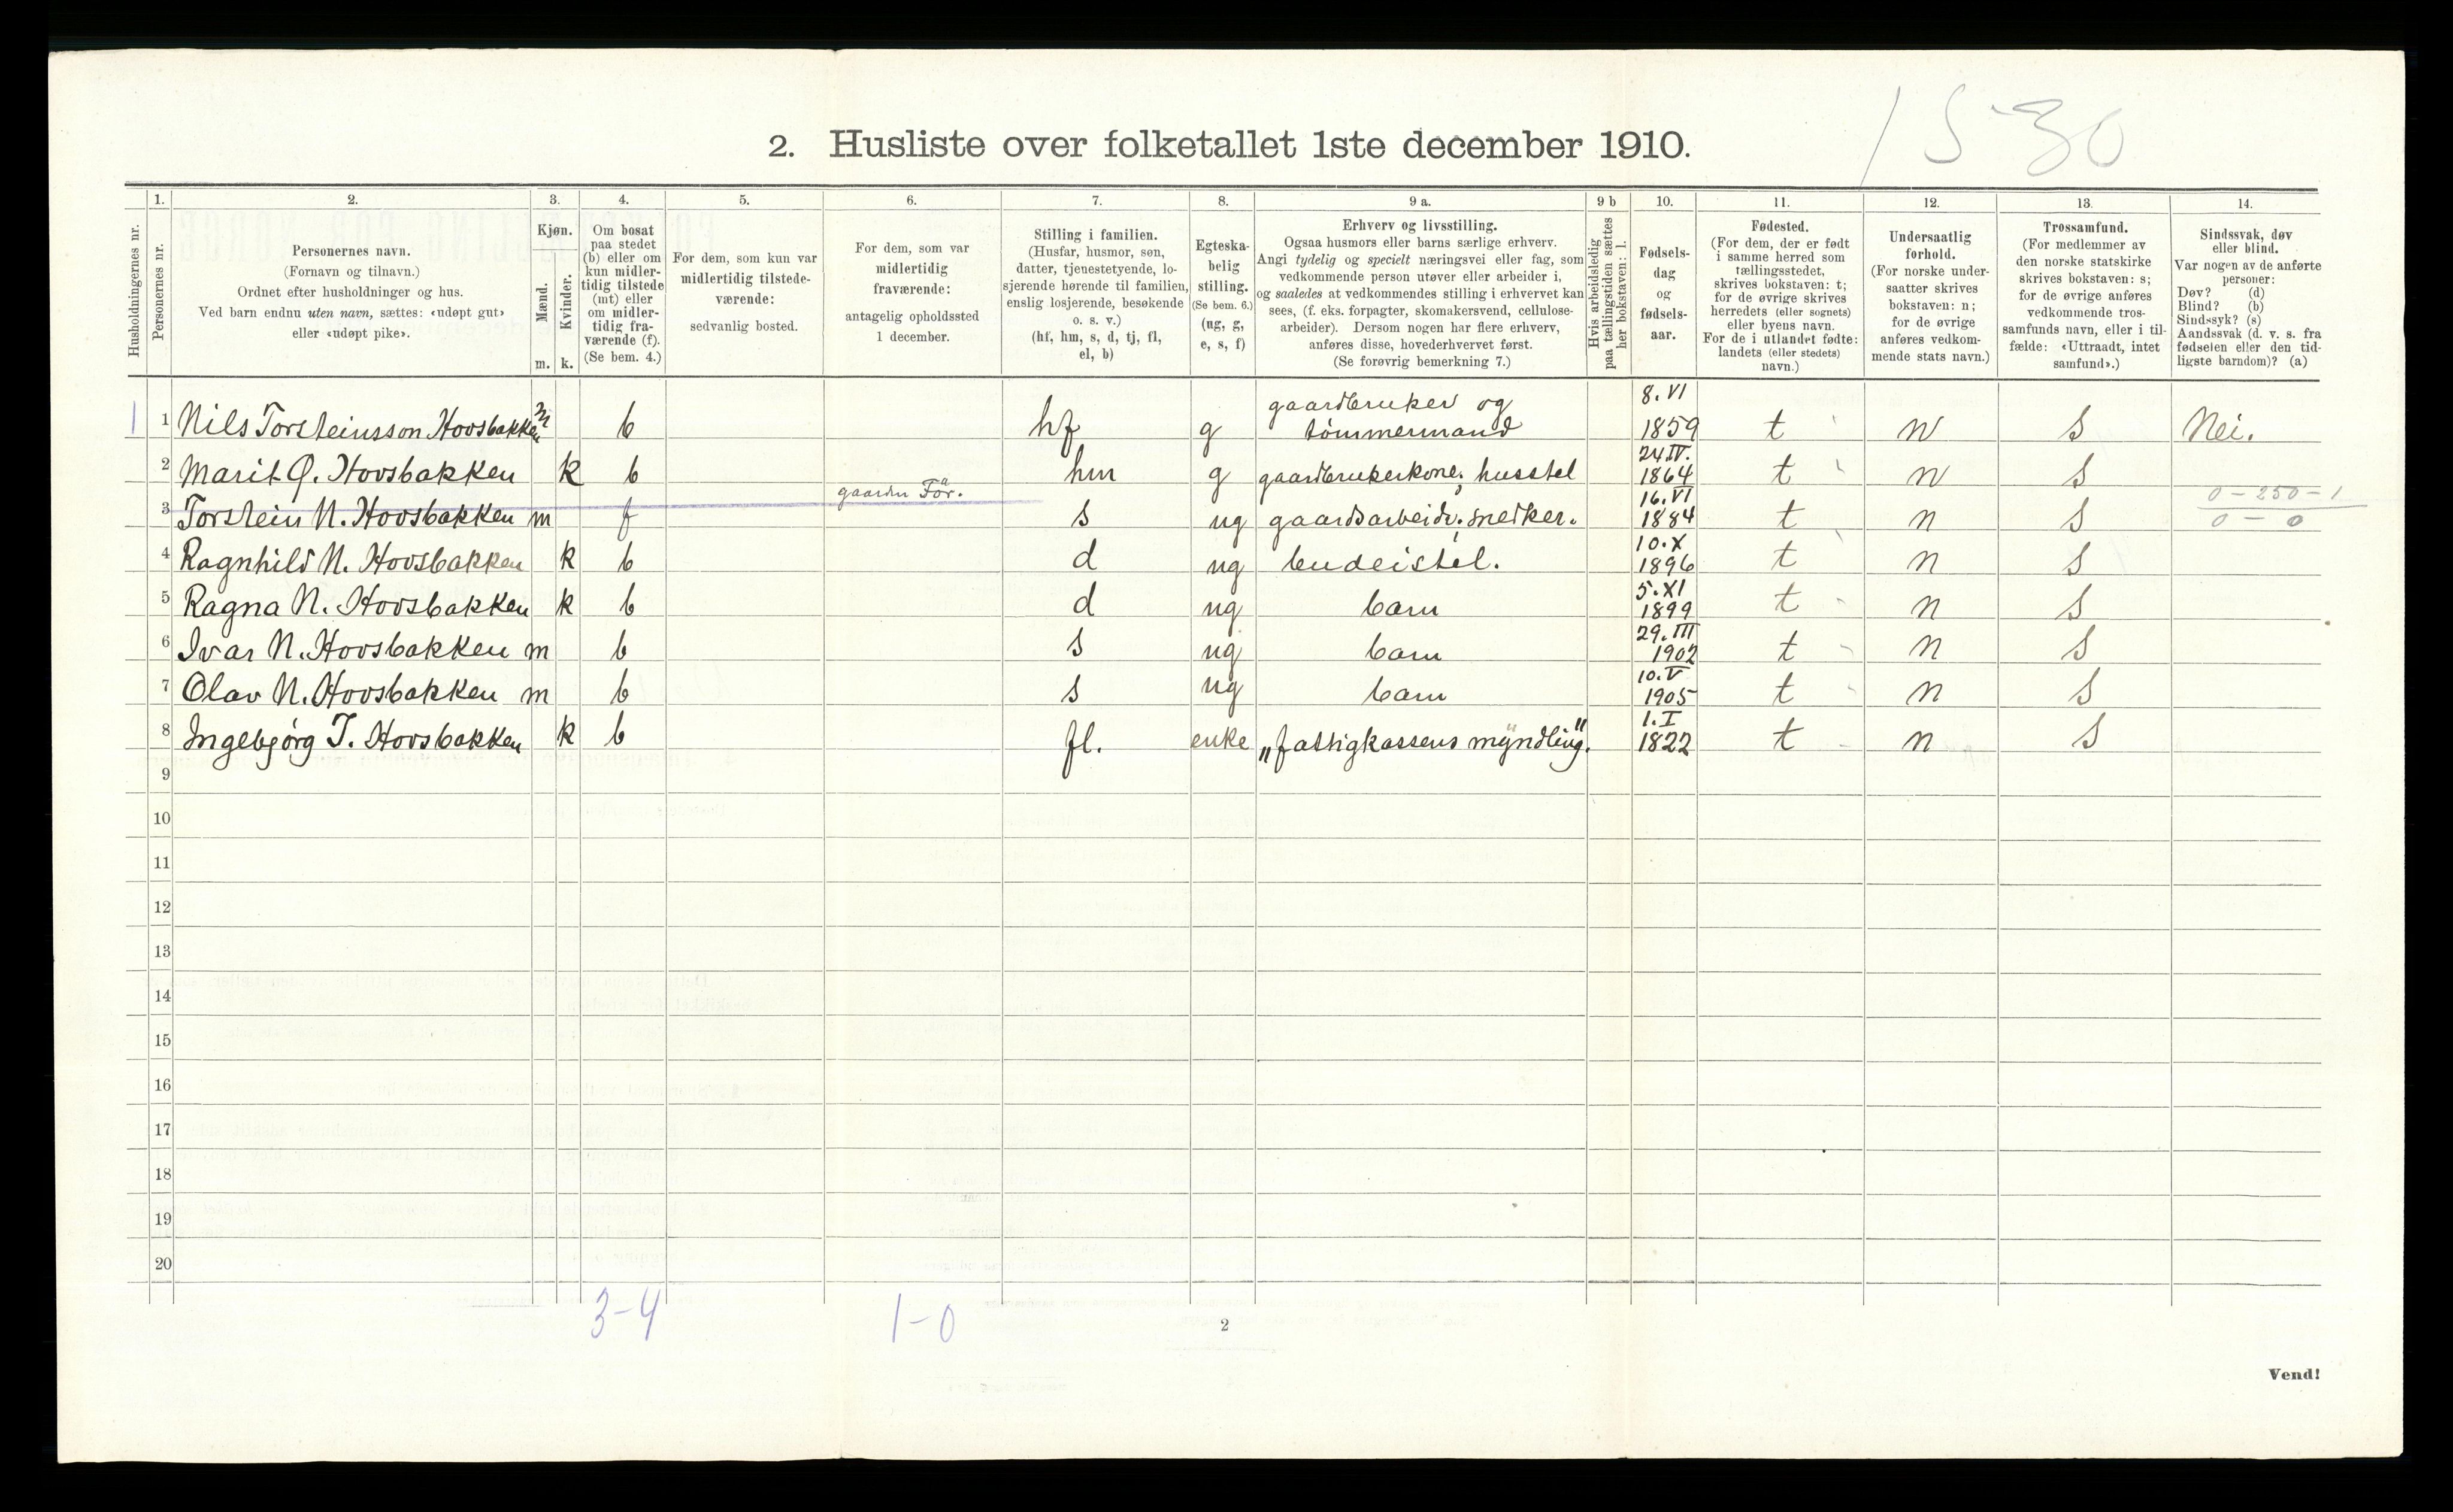 1530
2. Husliste over folketallet 1ste december 1910.
Husholdningernes nr.
1.
Personernes nr.
2.
Personernes navn.
(Fornavn og tilnavn.)
Ordnet efter husholdninger og hus.
Ved barn endnu uten navn, sættes: «udøpt gut»
eller «udøpt pike».
3.
Kjøn.
Mænd.
Kvinder.
m. k.
4.
Om bosat
paa stedet
(b) eller om
kun midler-
tidig tilstede
(mt) eller
om midler-
tidig fra-
værende (f).
(Se bem. 4.)
5.
For dem, som kun var
midlertidig tilstede-
værende:
sedvanlig bosted.
6.
For dem, som var
midlertidig
fraværende:
antagelig opholdssted
1 december.
7.
Stilling i familien.
(Husfar, husmor, søn,
datter, tjenestetyende, lo-
sjerende hørende til familien,
enslig losjerende, besøkende
o. s. v.)
(hf, hm, s, d, tj, fl,
el, b)
8.
Egteska-
belig
stilling.
(Se bem. 6.)
(ug, g,
e, s, f)
9 a.
Erhverv og livsstilling.
Ogsaa husmors eller barns særlige erhverv.
Angi tydelig og specielt næringsvei eller fag, som
vedkommende person utøver eller arbeider i,
og saaledes at vedkommendes stilling i erhvervet kan
sees, (f. eks. forpagter, skomakersvend, cellulose-
arbeider). Dersom nogen har flere erhverv,
anføres disse, hovederhvervet først.
(Se forøvrig bemerkning 7.)
9 b
Hvis arbeidsledig
paa tællingstiden sættes
her bokstaven: l.
10.
Fødsels-
dag
og
fødsels-
aar.
11.
Fødested.
(For dem, der er født
i samme herred som
tællingsstedet,
skrives bokstaven: t;
for de øvrige skrives
herredets (eller sognets)
eller byens navn.
For de i utlandet fødte:
landets (eller stedets)
navn.)
12.
Undersaatlig
forhold.
(For norske under-
saatter skrives
bokstaven: n;
for de øvrige
anføres vedkom-
mende stats navn.)
13.
Trossamfund.
(For medlemmer av
den norske statskirke
skrives bokstaven: s;
for de øvrige anføres
vedkommende tros-
samfunds navn, eller i til-
fælde: «Uttraadt, intet
samfund».)
14.
Sindssvak, døv
eller blind.
Var nogen av de anførte
personer:
Døv? (d)
Blind? (b)
Sindssyk? (s)
Aandssvak (d. v. s. fra
fødselen eller den tid-
ligste barndom)? (a)
1 1 Nils Torsteinsson Hovsbakken m b hf g gaardbruker og tømmermand 8.VI 1859 t n s Nei.
2 Marit O. Hovsbakken k b hm g gaardbrukerkone; husstel 24.IV. 1864 t n s
3 Torstein N. Hovsbakken m f gaarden Får. s ug gaardsarbeide; snedker. 16.VI 1884 t n s 0-250-1
0-0
4 Ragnhild N. Hovsbakken k b d ug budeistel. 10.X 1896 t n s
5 Ragna N. Hovsbakken k b d ug barn 5.XI 1899 t n s
6 Ivar N. Hovsbakken m b s ug barn 29.III 1902 t n s
7 Olav N. Hovsbakken m b s ug barn 10.V 1905 t n s
8 Ingebjørg T. Hovsbakken k b fl. enke „fattigkassens myndling". 1.I 1822 t n s
9
10
11
12
13
14
15
16
17
18
19
20
3-4 1-0
2
Vend!